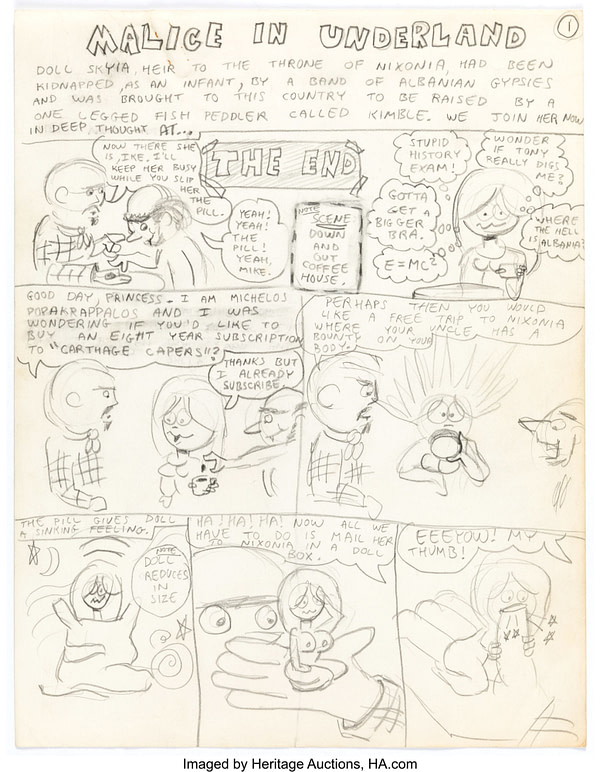 MALICE IN UNDERLAND
1
DOLL SKYIA, HEIR TO THE THRONE OF NIXONIA, HAD BEEN
KIDNAPPED, AS AN INFANT, BY A BAND OF ALBANIAN GYPSIES
AND WAS BROUGHT TO THIS COUNTRY TO BE RAISED BY A
ONE LEGGED FISH PEDDLER CALLED KIMBLE. WE JOIN HER NOW
IN DEEP THOUGHT AT...
NOW THERE SHE
IS, IKE. I'LL
KEEP HER BUSY
WHILE YOU SLIP
HER
THE
PILL.
YEAH!
YEAH!
THE
PILL!
YEAH,
MIKE.
THE END
NOTE
SCENE
DOWN
AND
OUT
COFFEE
HOUSE.
STUPID
HISTORY
EXAM!
WONDER
IF TONY
REALLY DIGS
ME?
GOTTA
GET A
BIGGER
BRA.
WHERE
THE HELL
IS ALBANIA?
E=MC²
GOOD DAY, PRINCESS. I AM MICHELOS
POPAKRAPPALOS AND I WAS
WONDERING IF YOU'D LIKE TO
BUY AN EIGHT YEAR SUBSCRIPTION
TO "CARTHAGE CAPERS"!?
THANKS BUT
I ALREADY
SUBSCRIBE.
PERHAPS THEN YOU WOULD
LIKE A FREE TRIP TO NIXONIA
WHERE YOUR UNCLE HAS A
BOUNTY ON YOUR
BODY.
THE PILL GIVES DOLL
A SINKING FEELING.
NOTE
DOLL
REDUCES
IN
SIZE
HA! HA! HA! NOW ALL WE
HAVE TO DO IS MAIL HER
TO NIXONIA IN A DOLL
BOX.
EEEYOW! MY
THUMB!
Imaged by Heritage Auctions, HA.com